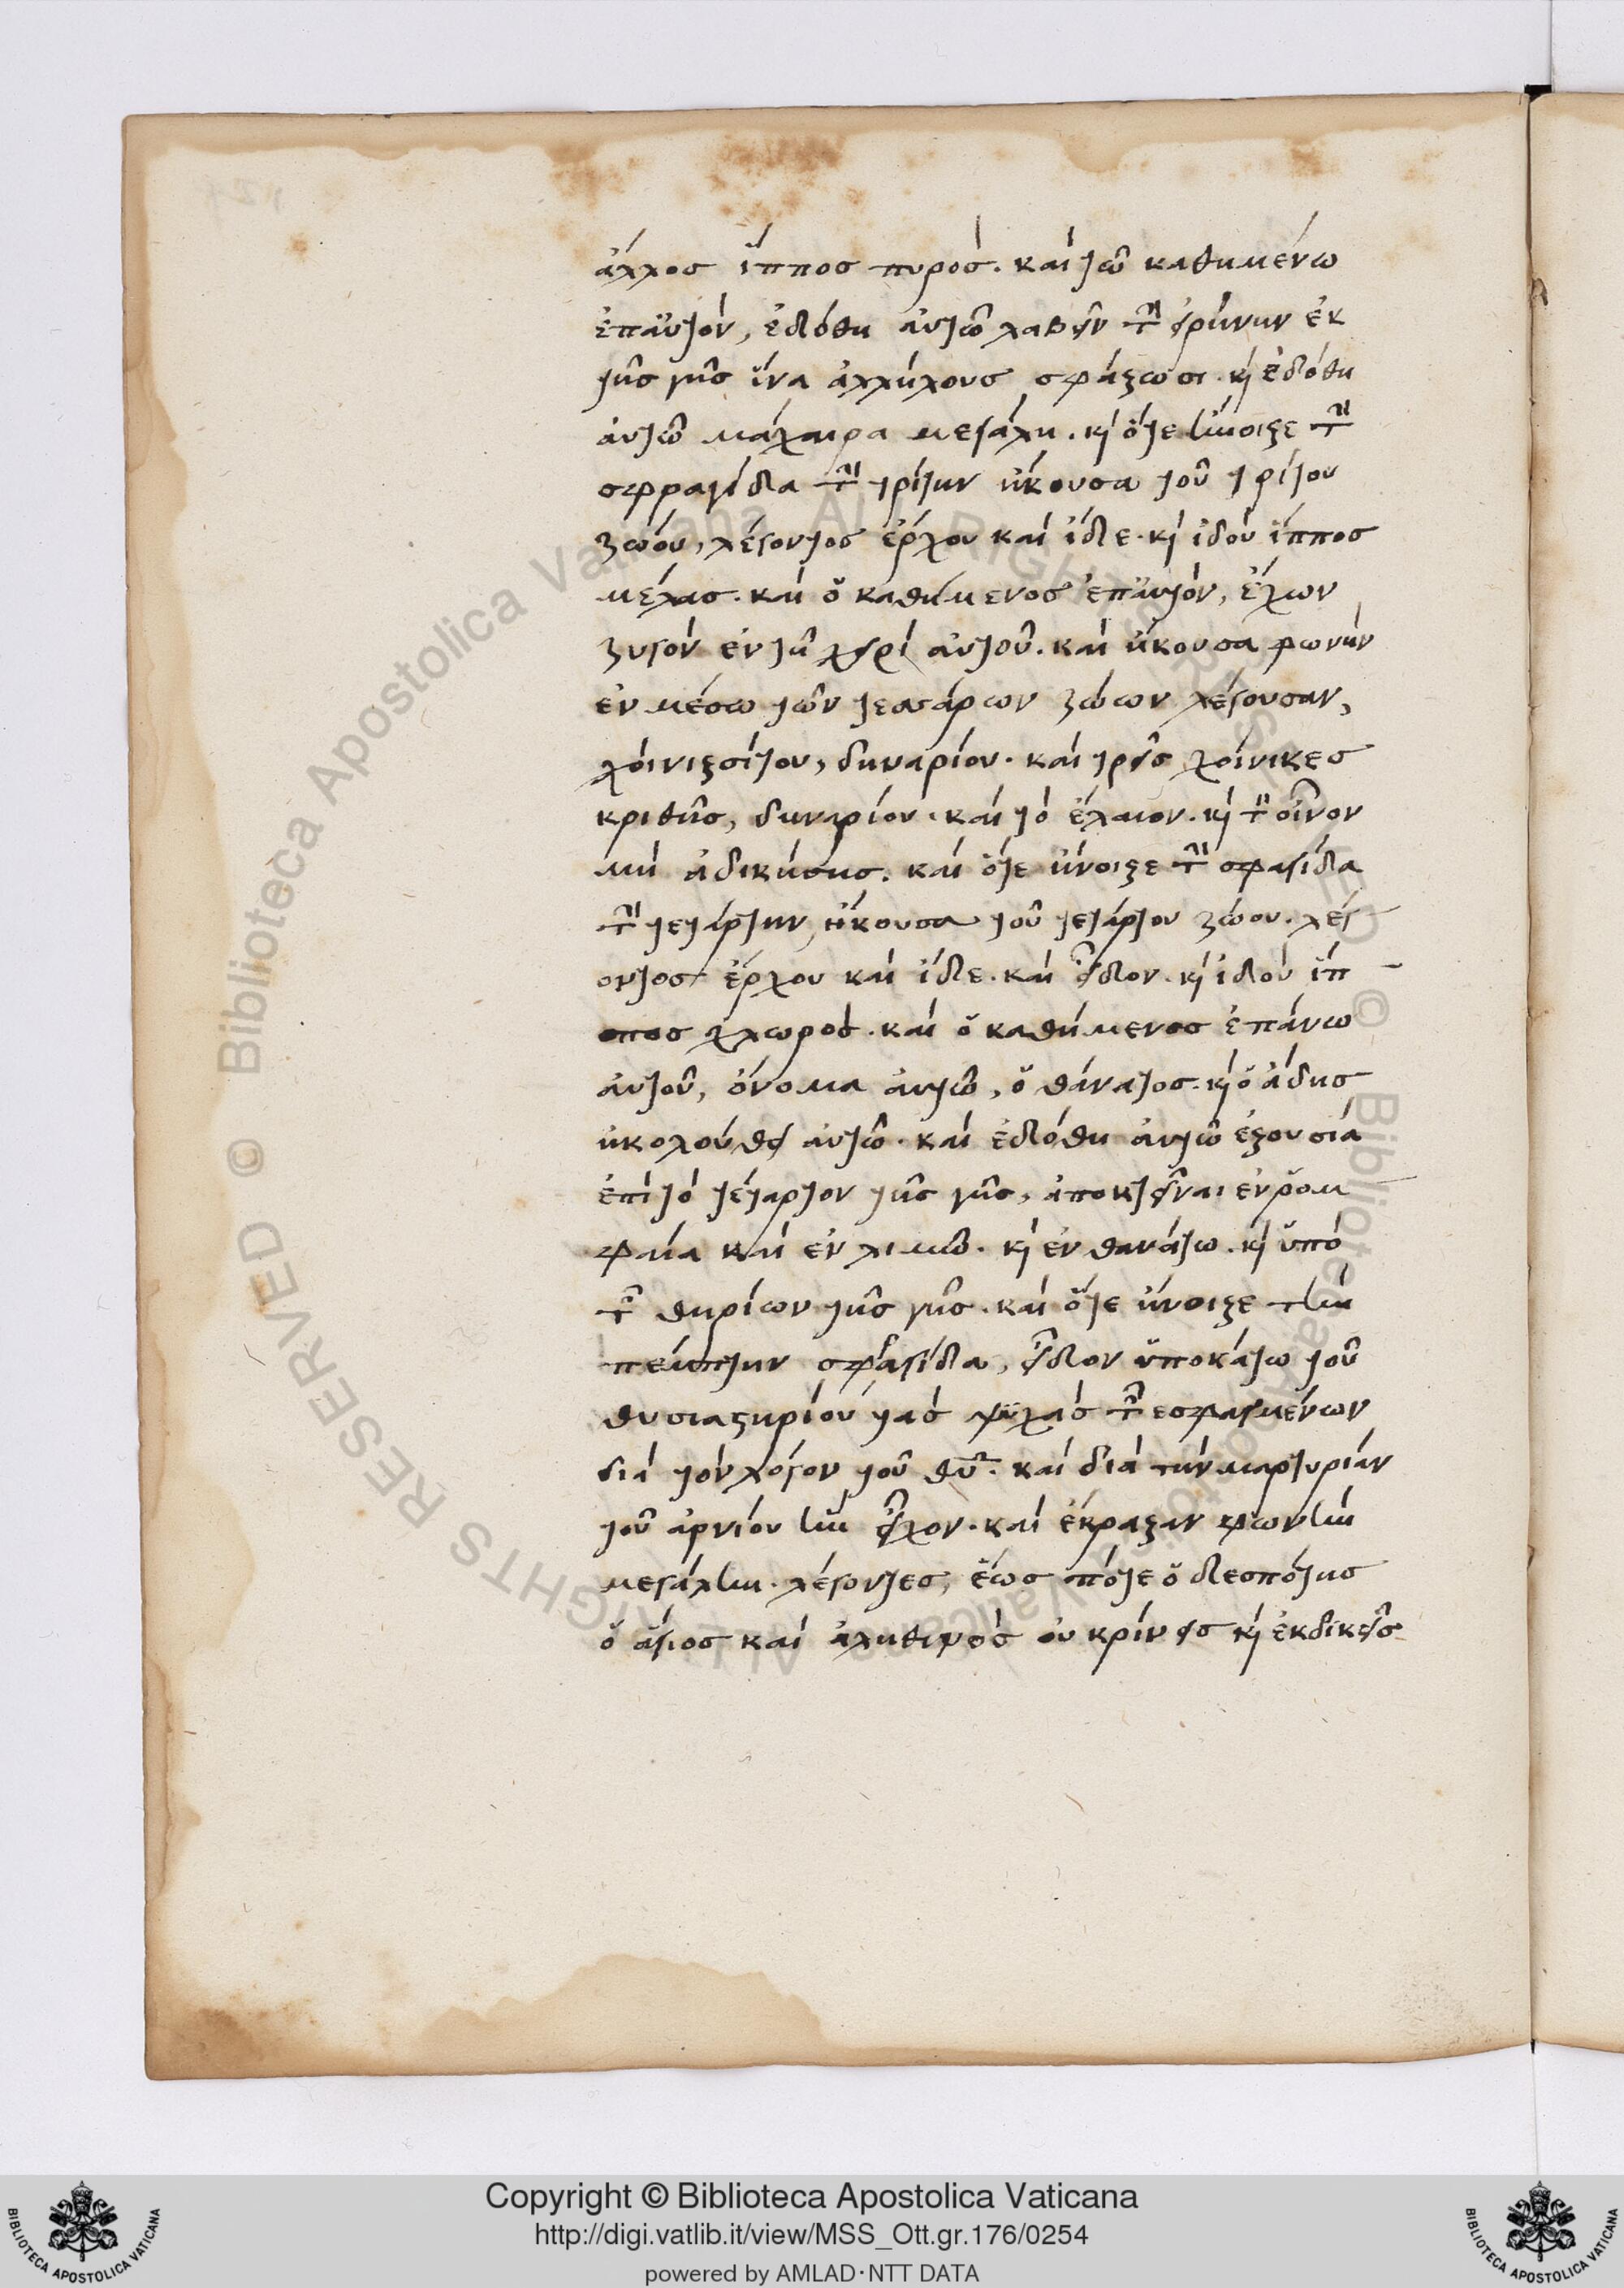 ἄλλος ἵππος πυρός. καὶ τῶ καθημένω
ἐπ' αὐτὸν, ἐδόθη αὐτῶ λαβεῖν τὴν εἰρήνην ἐκ
τῆς γῆς ἵνα ἀλλήλους σφάξωσι. κὶ ἐδόθη
αὐτῶ μάχαιρα μεγάλη. κὶ ὅτε ἤνοιξε τὴν
σφραγίδα τὴν τρίτην ἤκουσα τοῦ τρίτου
ζώου, λέγοντος ἔρχου καὶ ἴδε. κὶ ἰδοὺ ἵππος
μέλας. καὶ ὁ καθήμενος ἐπ' αὐτὸν, ἔχων
ζυγὸν ἐν τῆ χειρὶ αὐτοῦ. καὶ ἤκουσα φωνὴν
ἐν μέσω τῶν τεσσάρων ζώων λέγουσαν,
χοῖνιξ σίτου, δηναρίου. καὶ τρεῖς χοίνικες
κριθῆς, δηναρίου. καὶ τὸ ἔλαιον. κὶ τὸν οἶνον
μὴ ἀδικήσης. καὶ ὅτε ἤνοιξε τὴν σφαγίδα
τὴν τετάρτην, ἤκουσα τοῦ τετάρτου ζώου. λέγ
οντος ἔρχου καὶ ἴδε. καὶ εἶδον. κὶ ἰδοὺ ἵπ-
ππος χλωρός. καὶ ὁ καθήμενος ἐπάνω
αὐτοῦ, ὄνομα αὐτῶ, ὁ θάνατος. κὶ ὁ ἅδης
ἠκολούθει αὐτῶ. καὶ ἐδόθη αὐτῶ ἐξουσία
ἐπὶ τὸ τέταρτον τῆς γῆς, ἀποκτεῖναι ἐν ῥομ
φαία καὶ ἐν λιμῶ. κὶ ἐν θανάτω. κὶ ὑπὸ
τῶν θηρίων τῆς γῆς. καὶ ὅτε ἤνοιξε τὴν
πέμπτην σφραγίδα, εἶδον ὑποκάτω τοῦ
θυσιαστηρίου τὰς ψυχὰς τῶν ἐσφαγμένων
διὰ τὸν λόγον τοῦ θυ. καὶ διὰ τὴν μαρτυρίαν
τοῦ ἀρνίου ἣν εἶχον. καὶ ἔκραξαν φωνὴν
μεγάλην. λέγοντες, ἕως πότε ὁ δεσπότης
ὁ ἅγιος καὶ ἀληθινὸς οὐ κρίνεις κὶ ἐκδικεῖς
Copyright © Biblioteca Apostolica Vaticana
http://digi.vatlib.it/view/MSS_Ott.gr.176/0254
powered by AMLAD·NTT DATA